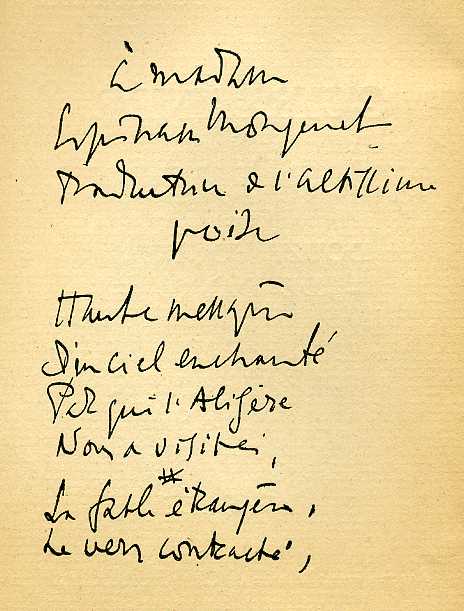 à madame
Espinasse Mongenet
traductrice de l'altissime
poète
Haute messagère
D'un ciel enchanté
Par qui l'Aligère
Nous a visités,
#
La fable étrangère,
Le vers contracté,